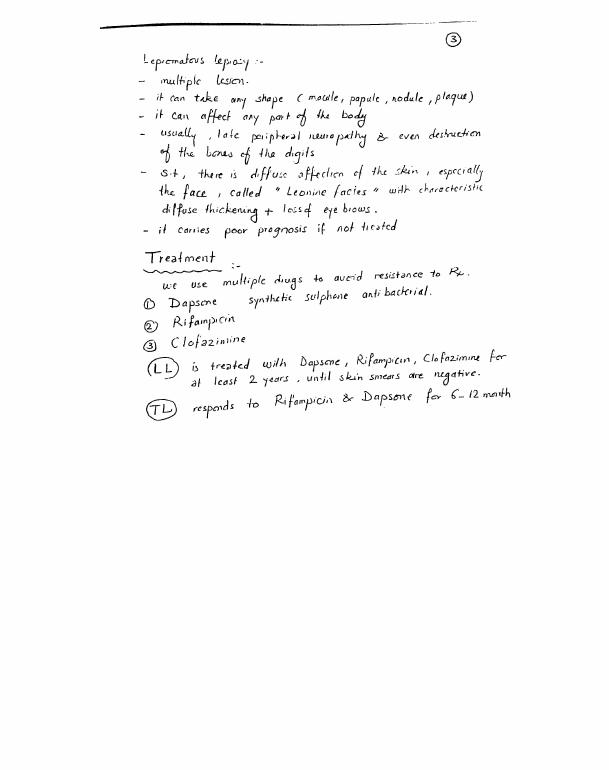 3
Lepromatous leprosy :-
- multiple lesion.
- it can take any shape ( macule, papule, nodule, plaque)
- it can affect any part of the body
- usually , late peripheral neuropathy & even destruction
of the bones of the digits
- s.t, there is diffuse affection of the skin , especially
the face , called " Leonine facies " with characteristic
diffuse thickening + loss of eye brows.
- it carries poor prognosis if not treated
Treatment :-
we use multiple drugs to avoid resistance to Rx.
① Dapsone synthetic sulphone antibacterial.
② Rifampicin
③ Clofazimine
LL is treated with Dapsone, Rifampicin, Clofazimine for
at least 2 years , until skin smears are negative.
TL responds to Rifampicin & Dapsone for 6-12 month